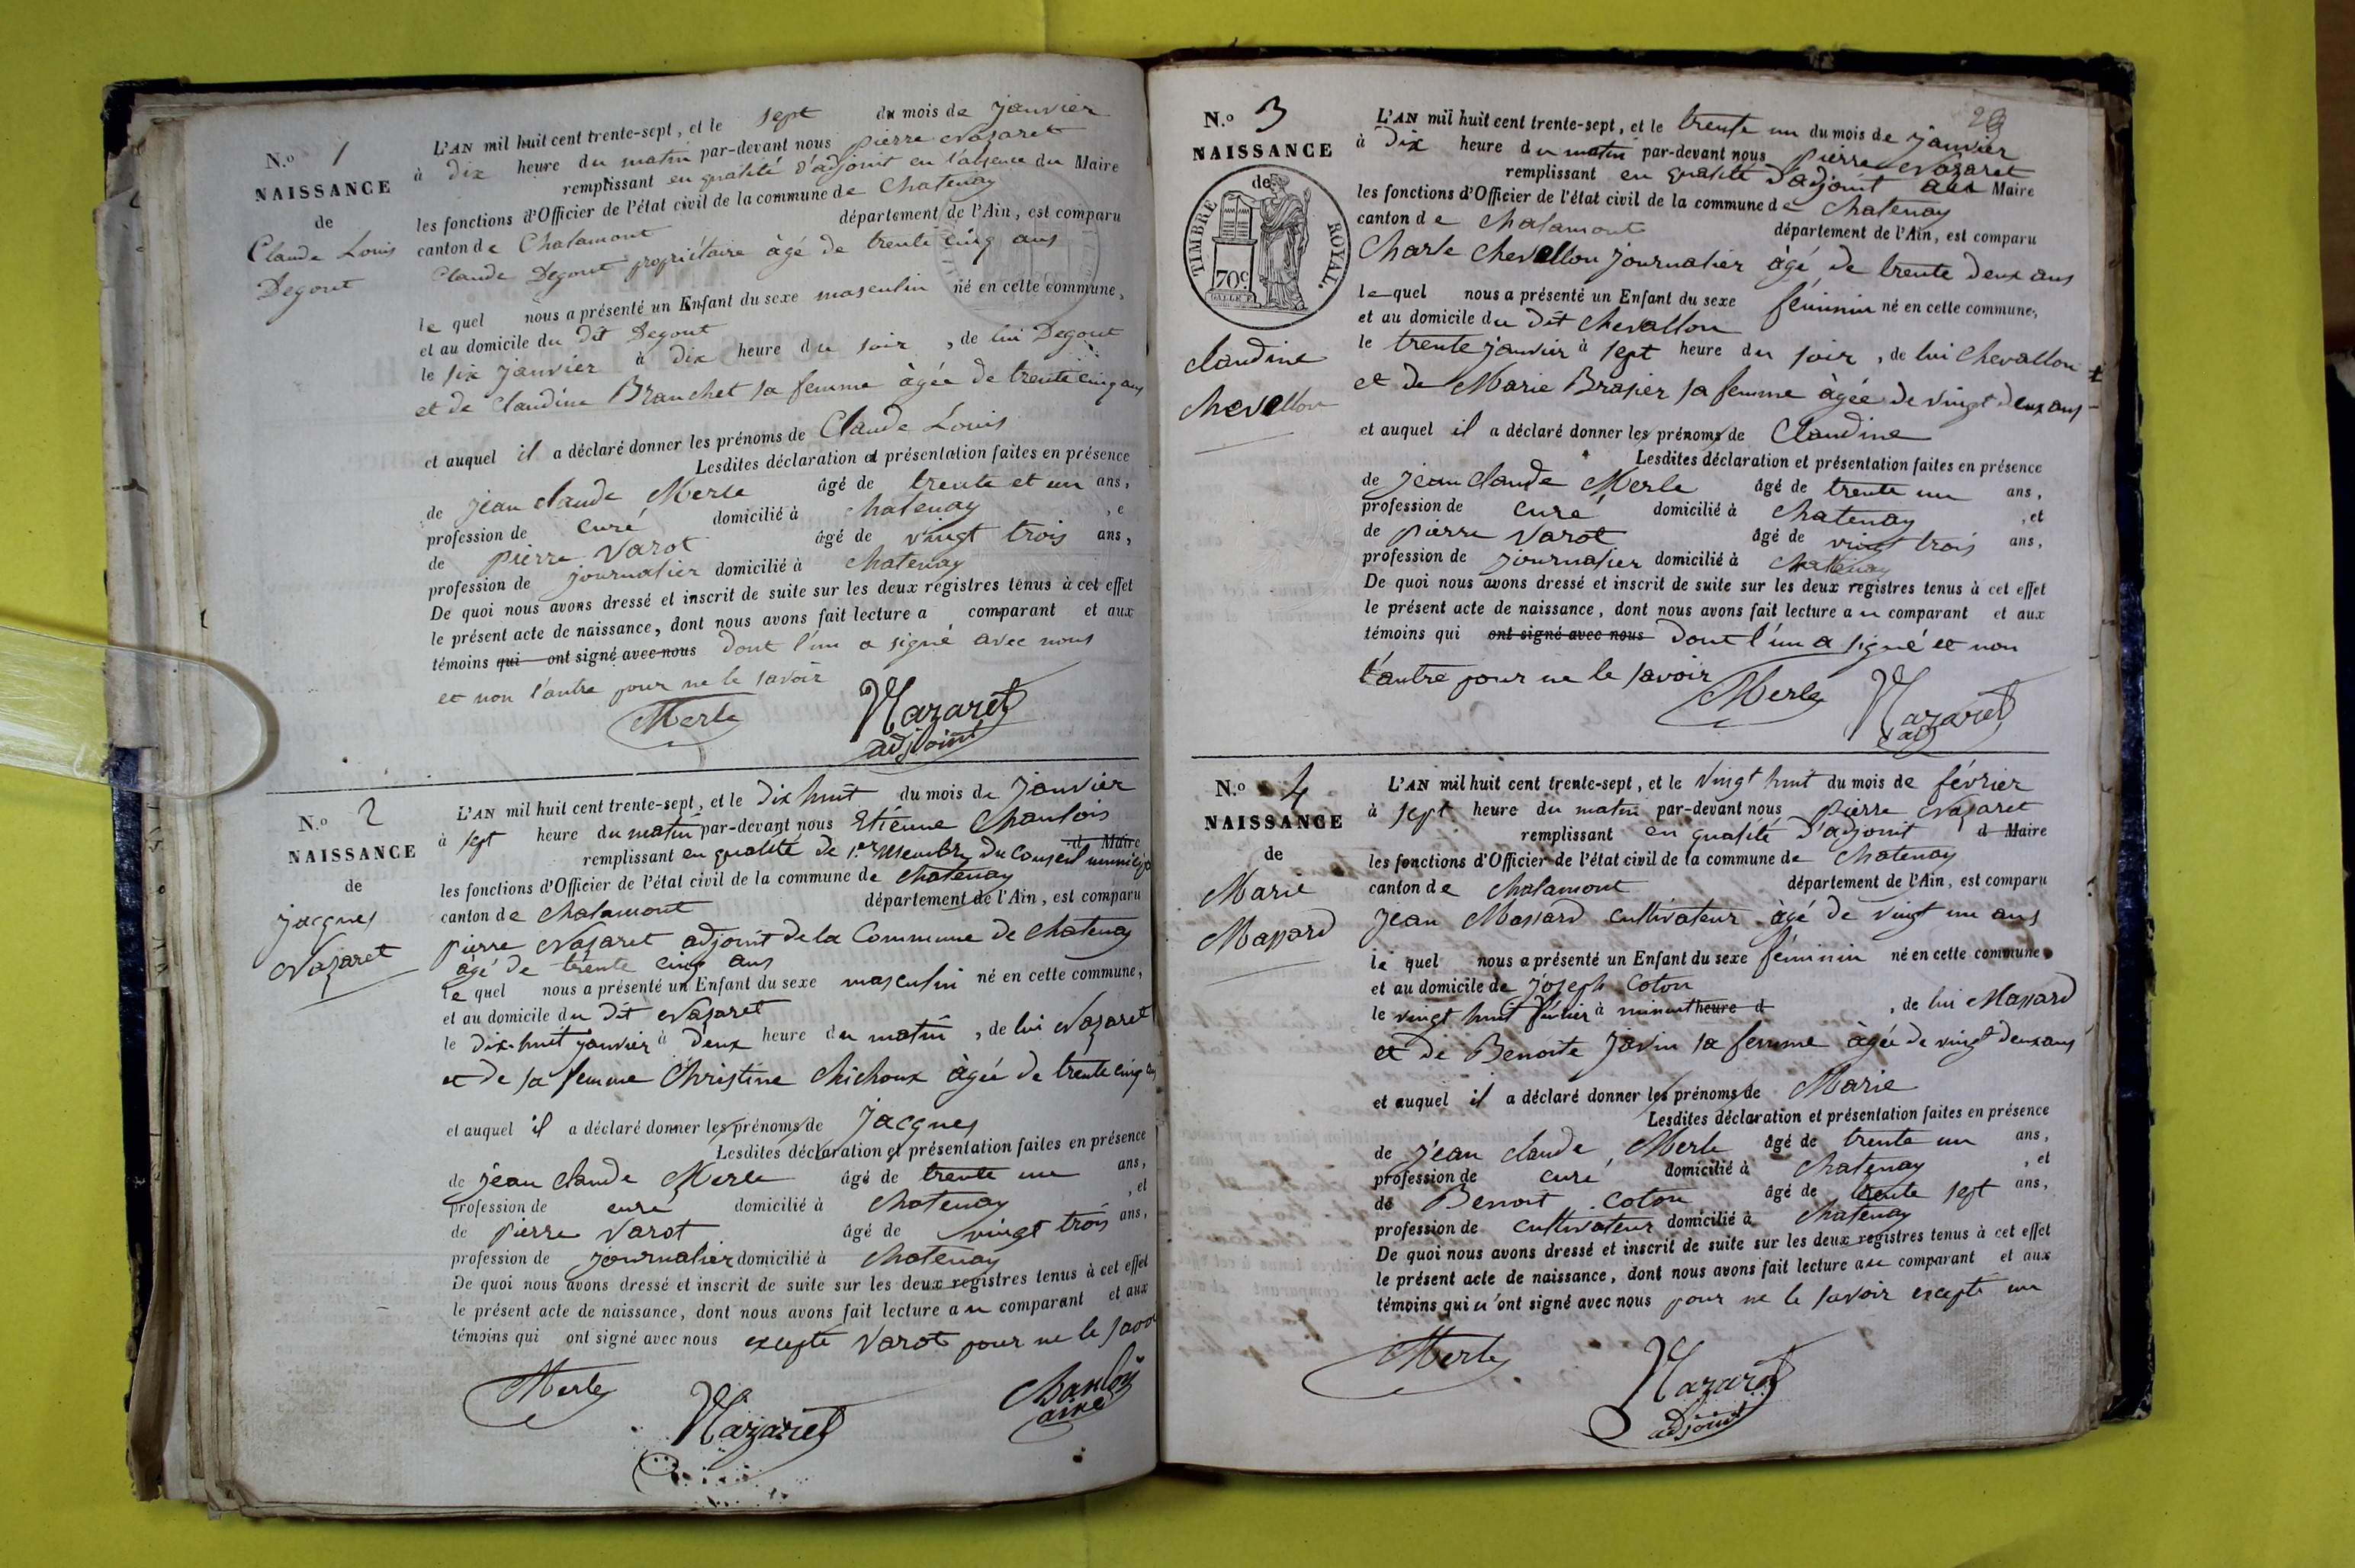 N.o 1
NAISSANCE
de
Claude Louis
Degout
L'AN mil huit cent trente-sept, et le sept du mois de janvier
à dix heure du matin par-devant nous pierre Nazaret
remplissant en qualité d'adjoint en l'absence du Maire
les fonctions d'Officier de l'état civil de la commune de Chatenay
canton de Chalamont département de l'Ain, est comparu
Claude Degout propriétaire âgé de trente cinq ans
le quel nous a présenté un Enfant du sexe masculin né en cette commune,
et au domicile du dit Degout
le six janvier à dix heure du soir, de lui Degout
et de Claudine Branchet sa femme âgée de trente cinq ans
et auquel il a déclaré donner les prénoms de Claude Louis
Lesdites déclaration et présentation faites en présence
de jean claude Merle âgé de trente et un ans,
profession de curé domicilié à chatenay, e
de pierre Varot âgé de vingt trois ans,
profession de journalier domicilié à chatenay
De quoi nous avons dressé et inscrit de suite sur les deux registres tenus à cet effet
le présent acte de naissance, dont nous avons fait lecture a comparant et aux
témoins qui ont signé avec nous dont l'un a signé avec nous
et non l'autre pour ne le savoir
Merle Nazaret
adjoint
N.o 2
NAISSANCE
de
jacques
Nazaret
L'AN mil huit cent trente-sept, et le dix huit du mois de janvier
à sept heure du matin par-devant nous Etienne Chanlois
d Maire
remplissant en qualité de 1.er Membre du Conseil municipa
les fonctions d'Officier de l'état civil de la commune de chatenay
canton de chalamont département de l'Ain, est comparu
pierre Nazaret adjoint de la Commune de chatenay
âgé de trente cinq ans
le quel nous a présenté un Enfant du sexe masculin né en cette commune,
et au domicile du dit Nazaret
le dix-huit janvier à deux heure du matin, de lui Nazaret
et de sa femme Christine Chichoux âgée de trente cinq ans
et auquel il a déclaré donner les prénoms de jacques
Lesdites déclaration et présentation faites en présence
de jean claude Merle âgé de trente un ans,
profession de curé domicilié à chatenay, et
de pierre Varot âgé de vingt trois ans,
profession de journalier domicilié à chatenay
De quoi nous avons dressé et inscrit de suite sur les deux registres tenus à cet effet
le présent acte de naissance, dont nous avons fait lecture au comparant et aux
témoins qui ont signé avec nous excepté Varot pour ne le savoir
Merle Nazaret Chanlois
ainé
N.o 3
NAISSANCE
de
TIMBRE ROYAL.
70c
claudine
chevallon
L'AN mil huit cent trente-sept, et le trente un du mois de janvier
à dix heure du matin par-devant nous pierre Nazaret
remplissant en qualité d'adjoint au Maire
les fonctions d'Officier de l'état civil de la commune de chatenay
canton de chalamont département de l'Ain, est comparu
Charle chevallon journalier âgé de trente deux ans
le quel nous a présenté un Enfant du sexe féminin né en cette commune,
et au domicile du dit chevallon
le trente janvier à sept heure du soir, de lui chevallon
et de Marie Brasier sa femme âgée de vingt deux ans
et auquel il a déclaré donner les prénoms de Claudine
Lesdites déclaration et présentation faites en présence
de jean claude Merle âgé de trente un ans,
profession de curé domicilié à chatenay, et
de pierre Varot âgé de vingt trois ans,
profession de journalier domicilié à chatenay
De quoi nous avons dressé et inscrit de suite sur les deux registres tenus à cet effet
le présent acte de naissance, dont nous avons fait lecture au comparant et aux
témoins qui ont signé avec nous dont l'un a signé et non
l'autre pour ne le savoir
Merle Nazaret
adj
N.o 4
NAISSANCE
de
Marie
Massard
L'AN mil huit cent trente-sept, et le vingt huit du mois de février
à sept heure du matin par-devant nous pierre Nazaret
remplissant en qualité d'adjoint d Maire
les fonctions d'Officier de l'état civil de la commune de chatenay
canton de chalamont département de l'Ain, est comparu
jean Massard cultivateur âgé de vingt un ans
le quel nous a présenté un Enfant du sexe féminin né en cette commune
et au domicile de joseph Coton
le vingt huit février à minuit heure d, de lui Massard
et de Benoite javin sa femme âgée de vingt deux ans
et auquel il a déclaré donner les prénoms de Marie
Lesdites déclaration et présentation faites en présence
de jean claude Merle âgé de trente un ans,
profession de curé domicilié à chatenay, et
de Benoit Coton âgé de trente sept ans,
profession de cultivateur domicilié à chatenay
De quoi nous avons dressé et inscrit de suite sur les deux registres tenus à cet effet
le présent acte de naissance, dont nous avons fait lecture au comparant et aux
témoins qui n'ont signé avec nous pour ne le savoir excepté un
Merle Nazaret
adjoint